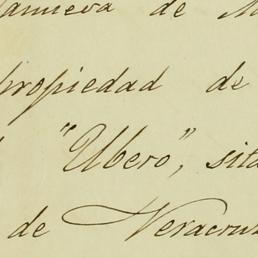 anueva de M
propiedad de
"Ubero", sita
de Veracruz